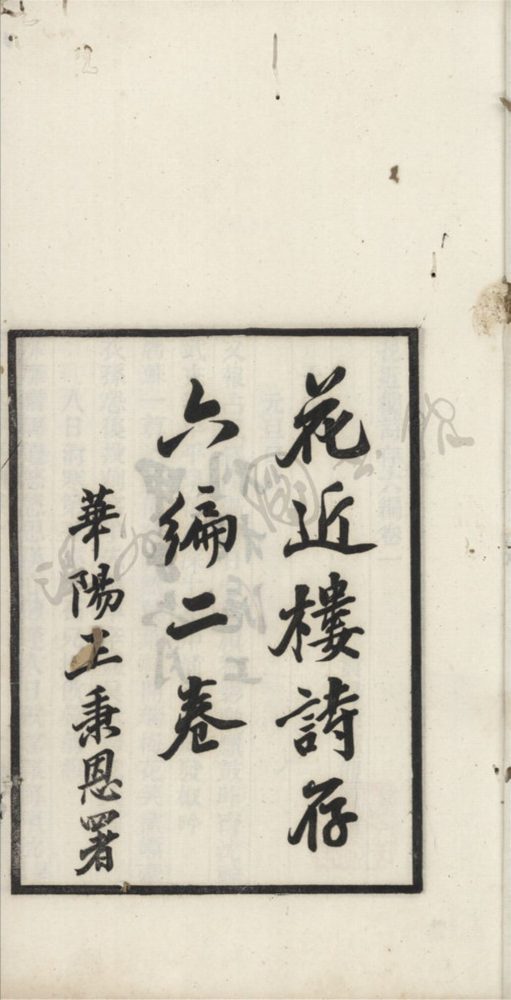 花近樓詩存
六編二卷
華陽王秉恩署